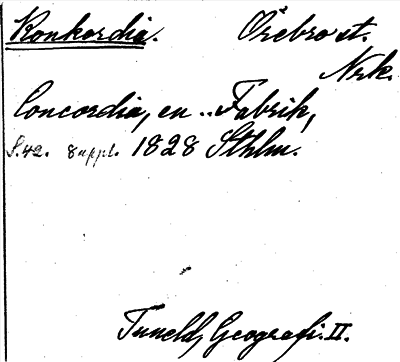 Konkordia. Örebro st.
Nrk.
Concordia, en .. Fabrik,
S. 42. suppl. 1828 Sthlm.
Tuneld, Geografi. II.